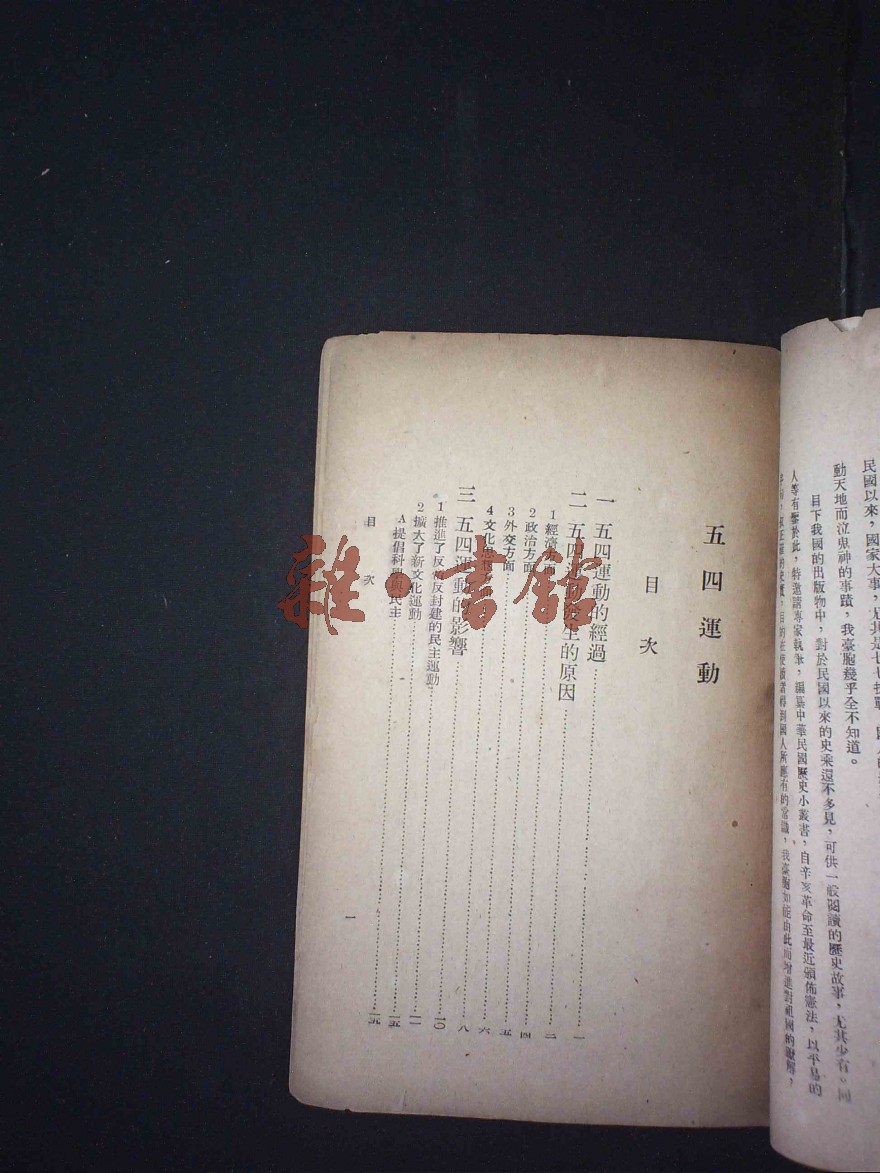 民國以來，國家大事，尤其是七七抗戰
動天地而泣鬼神的事蹟，我臺胞幾乎全不知道。
目下我國的出版物中，對於民國以來的史乘還不多見，可供一般閱讀的歷史故事，尤其少有。同
人等有鑒於此，特邀請專家執筆，編纂中華民國歷史小叢書，自辛亥革命至最近頒佈憲法，以平易的
的史實，目的在使讀者得到國人所應有的常識，我臺胞如能由此而增進對祖國的瞭解，
五四運動
目次
一 五四運動的經過……一
二 五四運動發生的原因……二
1 經濟方面……四
2 政治方面……五
3 外交方面……六
4 文化思想……八
三 五四運動的影響……一〇
1 推進了反帝反封建的民主運動……一一
2 擴大了新文化運動……一五
A 提倡科學與民主……一五
目次
一
雜·書館